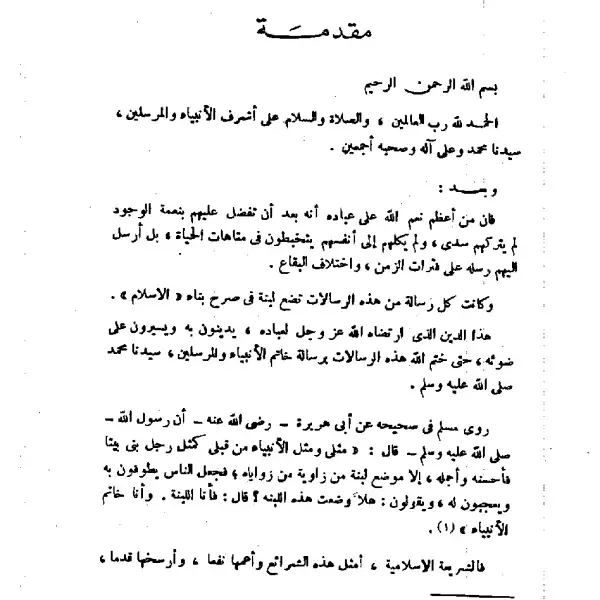 مقدمـــة
بسم الله الرحمن الرحيم
الحمد لله رب العالمين ، والصلاة والسلام على أشرف الأنبياء والمرسلين ،
سيدنا محمد وعلى آله وصحبه أجمعين .
وبعــد :
فان من أعظم نعم الله على عباده أنه بعد أن تفضل عليهم بنعمة الوجود
لم يتركهم سدى ، ولم يكلهم إلى أنفسهم يتخبطون فى متاهات الحياة ، بل أرسل
اليهم رسله على فترات الزمن ، واختلاف البقاع .
وكانت كل رسالة من هذه الرسالات تضع لبنة فى صرح بناء « الاسلام » .
هذا الدين الذى ارتضاه الله عز وجل لعباده ، يدينون به ويسيرون على
ضوئه ، حتى ختم الله هذه الرسالات برسالة خاتم الأنبياء والمرسلين ، سيدنا محمد
صلى الله عليه وسلم .
روى مسلم فى صحيحه عن أبى هريرة – رضى الله عنه – أن رسول الله –
صلى الله عليه وسلم – قال : « مثلى ومثل الأنبياء من قبلى كمثل رجل بنى بيتا
فأحسنه وأجمله ، إلا موضع لبنة من زاوية من زواياه ، فجعل الناس يطوفون به
ويعجبون له ، ويقولون : هلاّ وضعت هذه اللبنه ؟ قال : فأنا اللبنة . وأنا خاتم
الأنبياء » (١) .
فالشريعة الاسلامية ، أمثل هذه الشرائع وأعمها نفعا ، وأرسخها قدما ،